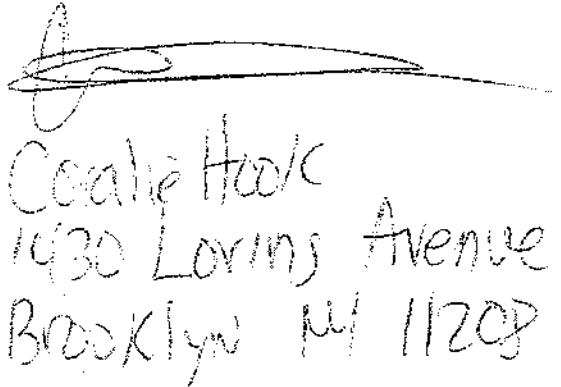 Coalie Hook
1430 Loring Avenue
Brooklyn NY 11208